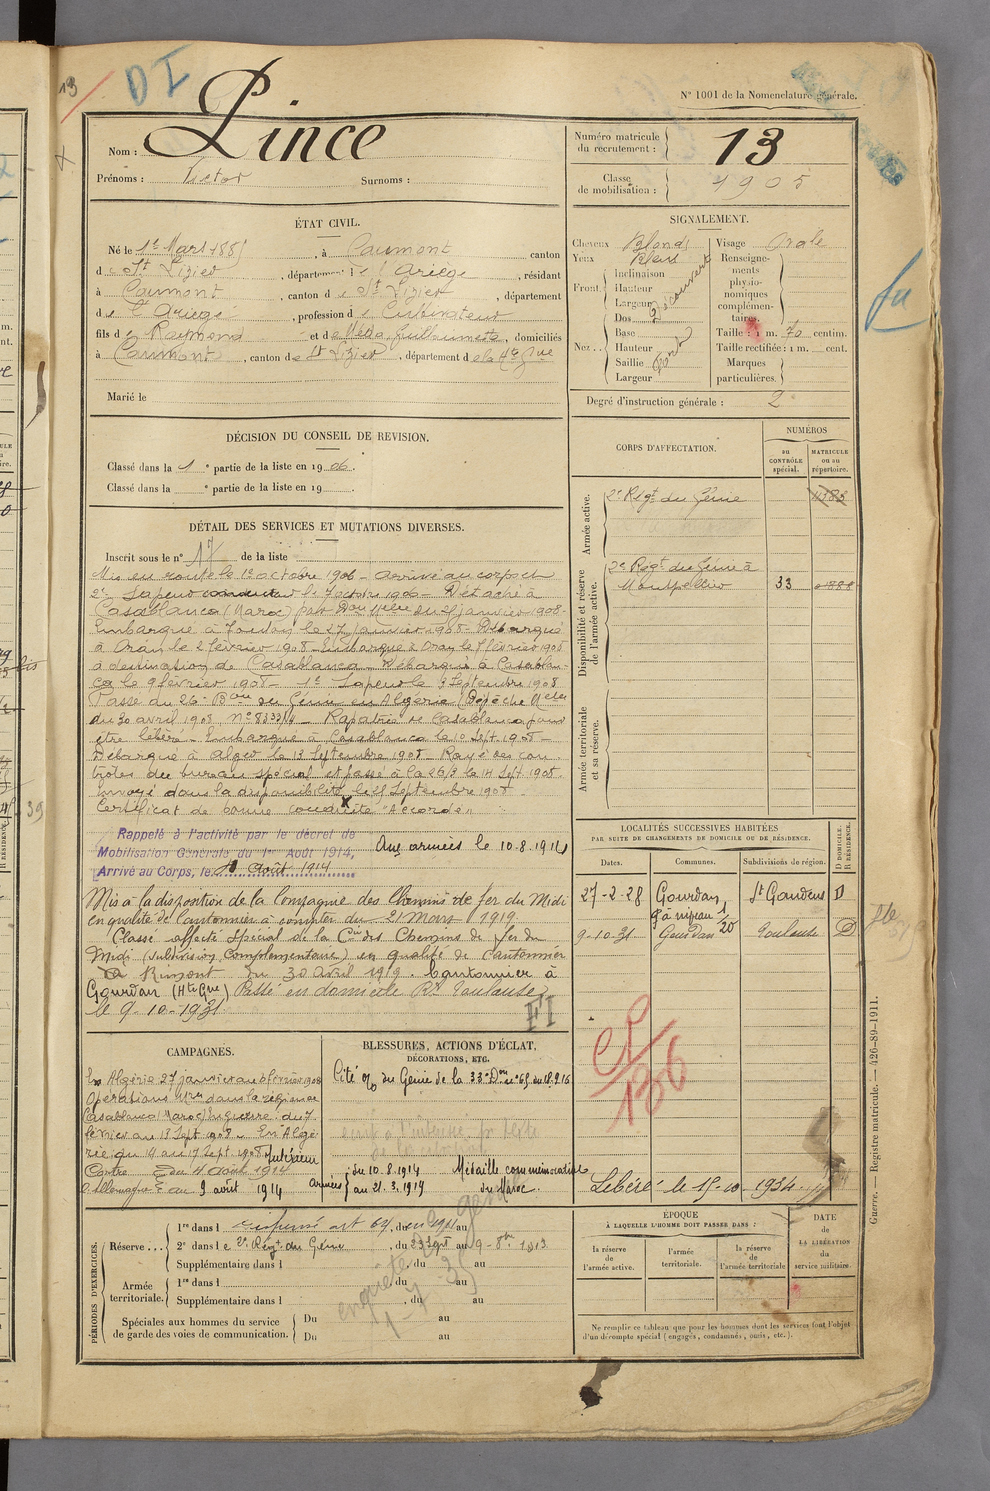 13
DI
N° 1001 de la Nomenclature générale.
Nom : Pince
Prénoms : Victor Surnoms :
Numéro matricule du recrutement : 13
Classe de mobilisation : 1905
ÉTAT CIVIL.
Né le 1er Mars 1885, à Caumont canton
de St Lizier, département de l'Ariège, résidant
à Caumont, canton de St Lizier, département
de l'Ariège, profession de Cultivateur
fils de Raymond et de Méda Guillaumette, domiciliés
à Caumont, canton de St Lizier, département de la Hte Gne
Marié le
SIGNALEMENT.
Cheveux Blonds
Yeux Bleus
Front. Inclinaison
Hauteur
Largeur
Découvert
Nez.. Dos
Base
Hauteur
Saillie
Largeur
Visage Ovale
Renseignements physionomiques complémentaires.
Taille : 1 m. 70 centim.
Taille rectifiée : 1 m. cent.
Marques particulières.
Degré d'instruction générale : 2
DÉCISION DU CONSEIL DE REVISION.
Classé dans la 1e partie de la liste en 1906.
Classé dans la e partie de la liste en 19 .
CORPS D'AFFECTATION.
NUMÉROS
au CONTRÔLE spécial.
MATRICULE ou au répertoire.
Armée active.
2e Régt du Génie
Disponibilité et réserve de l'armée active.
2e Régt du Génie à
Montpellier 33
Armée territoriale et sa réserve.
DÉTAIL DES SERVICES ET MUTATIONS DIVERSES.
Inscrit sous le n° 17 de la liste
Mis en route le 1er octobre 1906 - arrivé au corps et
2e Sapeur conducteur le 7 octobre 1906 - Détaché à
Casablanca (Maroc) par Don Mlle du 21 janvier 1908 -
Embarqué à Toulon le 27 janvier 1908 - Débarqué
à Oran le 2 février 1908 - Embarqué à Oran le février 1908
à destination de Casablanca - Débarqué à Casablan-
ca le 9 février 1908 - 1er Sapeur le 9 Septembre 1908
Passé au 26e Bon du Génie en Algérie (Dépêche Mlle
du 30 avril 1908, N° - Rapatrié de Casablanca pour
être libéré - Embarqué à Casablanca le 10 Sept. 1908 -
Débarqué à Alger le 13 Septembre 1908 - Rayé des con-
trôles du bureau spécial et passé à la 26/3 le 14 Sept. 1908.
Envoyé dans la disponibilité le Septembre 1908 -
Certificat de bonne conduite "Accordé"
Rappelé à l'activité par le décret de
Mobilisation Générale du 1er Août 1914,
Arrivé au Corps, le Août 1914
Aux armées le 10-8-1914
Mis à la disposition de la Compagnie des Chemins de fer du Midi
en qualité de Cantonnier à compter du 21 Mars 1919.
Classé affecté spécial de la Cie des Chemins de fer du
Midi (subdivision Complémentaire) en qualité de Cantonnier
à Rimont du 30 Avril 1919. Cantonnier à
Gourdan (Hte Gne) Passé en domicile Rt Toulouse
le 9-10-1931
FI
LOCALITÉS SUCCESSIVES HABITÉES
PAR SUITE DE CHANGEMENTS DE DOMICILE OU DE RÉSIDENCE.
Dates. Communes. Subdivisions de région. D DOMICILE. R RÉSIDENCE.
27-2-28 Gourdan St Gaudens D
9-10-31 Gourdan Toulouse D
CP
156
CAMPAGNES.
En Algérie 27 janvier au 6 février 1908
Opérations Mres dans la région de
Casablanca (Maroc) en guerre du 7
février au 13 Sept 1908 - En Algé-
rie du 14 au 17 Sept. 1908
Intérieur
Contre du 4 Août 1914
l'Allemagne au 9 août 1914
Armées du 10.8.1914
au 21.3.1919
BLESSURES, ACTIONS D'ÉCLAT,
DÉCORATIONS, ETC.
Cité O/ du Génie de la 33e Don n° 65 du 18.9.16
Médaille commémorative
du Maroc.
Libéré le 15-10-1934
PÉRIODES D'EXERCICES.
Réserve... 1re dans l dispensé art 64, du en 1911 au
2e dans le 2e Régt du Génie, du 23 Sept au 9-8bre 1913
Supplémentaire dans l , du au
Armée territoriale. 1re dans l , du au
Supplémentaire dans l , du au
Spéciales aux hommes du service de garde des voies de communication. Du au
Du au
ÉPOQUE
À LAQUELLE L'HOMME DOIT PASSER DANS :
la réserve de l'armée active.
l'armée territoriale.
la réserve de l'armée territoriale
DATE de LA LIBÉRATION du service militaire.
Ne remplir ce tableau que pour les hommes dont les services font l'objet
d'un décompte spécial (engagés, condamnés, omis, etc.).
Guerre. — Registre matricule. — 426-89-1911.